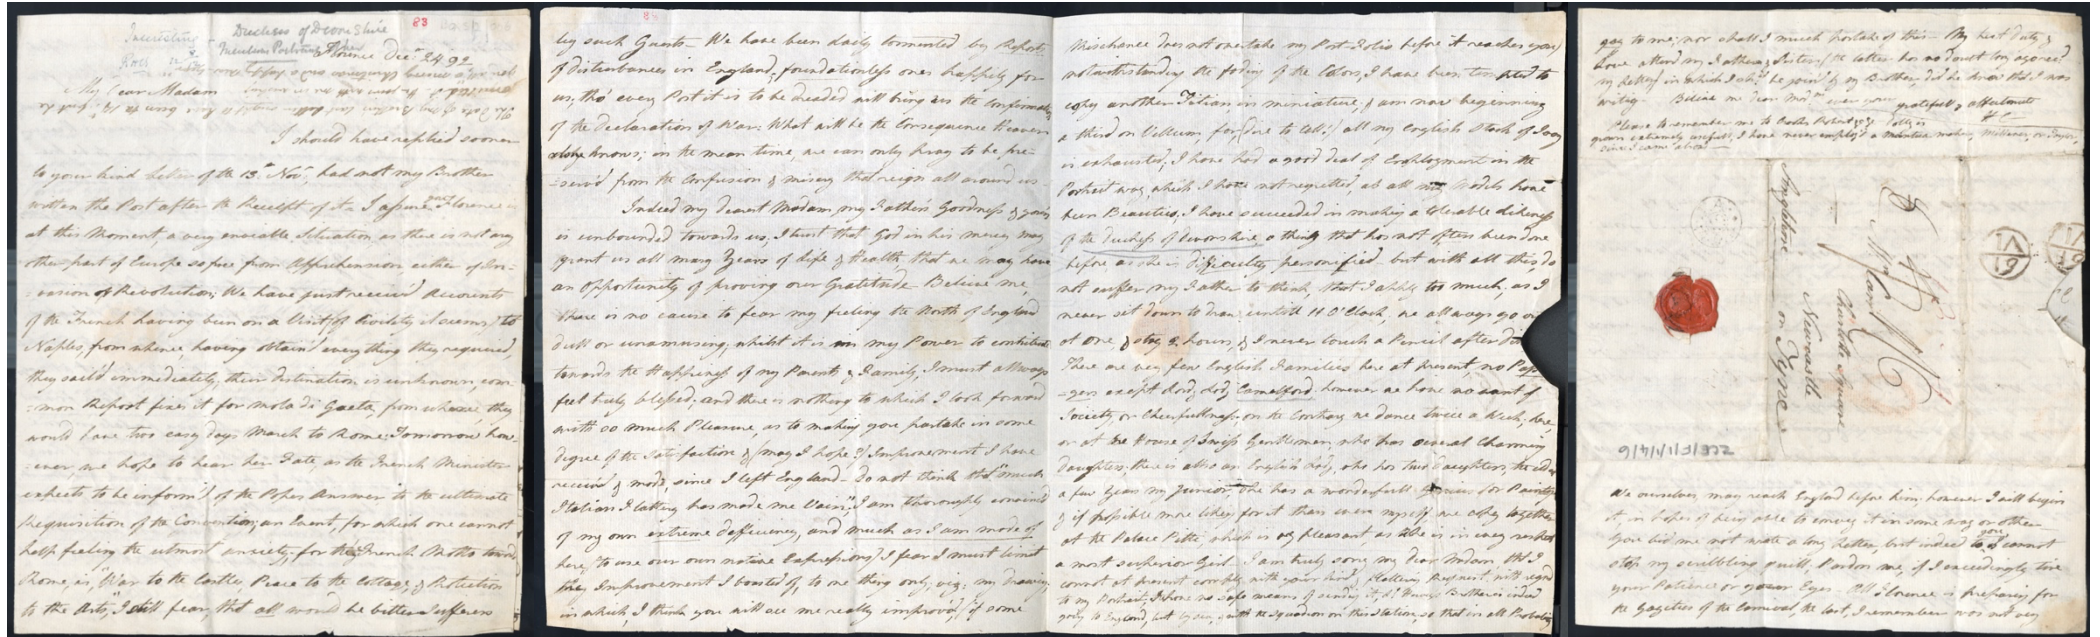 83
Interesting - Duchess of Devonshire
Miniature Portraits
Florence Dec. 24. 92
My Dear Madam
I should have replied sooner
to your kind letter of the 13th Novr, had not my Brother
written the Post after the Receipt of it. I assure you Florence is
at this Moment, a very enviable Situation as there is not any
other part of Europe so free from Apprehension either of In=
=vasion or Revolution; We have just receiv'd Accounts
of the French having been on a Visit (of Civility it seems) to
Naples, from whence, having obtain'd every thing they required,
they sail'd immediately, their destination is unknown, com=
=mon Report fixes it for Mola di Gaeta, from whence, they
would have two easy days March to Rome: Tomorrow how=
=ever we hope to hear her Fate, as the French Minister
expects to be inform'd of the Popes Answer to the ultimate
Requisition of the Convention; an Event, for which one cannot
help feeling the utmost anxiety; for the French Motto toward
Rome, is, "War to the Castles, Peace to the Cottage, & Protection
to the Arts," I still fear, that all would be bitter Sufferers
by such Guests - We have been daily tormented by Reports
of disturbances in England, foundationless ones happily for
us; tho' every Post it is to be dreaded will bring us the Confirmation
of the Declaration of War: What will be the Consequence Heaven
alone knows; in the mean time, we can only pray to be pre=
=serv'd from the Confusion & misery that reign all around us -
Indeed my dearest Madam, my Father's Goodness & yours
is unbounded towards us; I trust that God in his mercy may
grant us all many Years of Life & Health, that we may have
an opportunity of proving our Gratitude - Believe me,
there is no cause to fear my feeling the North of England
dull or unamusing, whilst it is in my Power to contribute
towards the Happiness of my Parents & Family, I must allways
feel truly blessed; and there is nothing to which I look forward
with so much Pleasure, as to making you partake in some
degree of the Satisfaction & (may I hope?) Improvement I have
receiv'd & made, since I left England - do not think that "much
Italian Flattery has made me Vain", I am thoroughly convinced
of my own extreme defficiency, and much as I am made of
here, (to use our own native Expression) I fear I must limit
the Improvement I boasted of, to one thing only; viz: my drawing,
in which, I think you will see me really improv'd, if some
Mischance does not overtake my Port-Folio before it reaches you
notwithstanding the fading of the Colors, I have been tempted to
copy another Titian in miniature, & am now beginning
a third on Vellum, for, (dire to tell!) all my English Stock of Ivory
is exhausted; I have had a good deal of Employment in the
Portrait way, which I have not regretted, as all my Models have
been Beauties, I have succeeded in making a tolerable likeness
of the Duchess of Devonshire, a thing that has not often been done
before as she is difficulty personified, but with all this, do
not suffer my Father to think, that I apply too much, as I
never set down to Draw untill 11 O'Clock, we allways go out
at one, & stay 2 hours, & I never touch a Pencil after
There are very few English Families here at present
except Lord & Lady Camelford, however we have no want of
Society, or Chearfullness, on the Contrary we dance twice a Week, here
or at the House of Swiss Gentleman who has several charming
Daughters. there is also an English Lady, who has two daughters, the elder
a few Years my Junior, One has a wonderfull Genius for Painting
& if possible more liking for it than even myself, we copy together
at the Palace Pitti, which is very pleasant, as she is in every respect
a most superior Girl - I am truly sorry, my dear Madam, that I
cannot at present comply, with your kind, & flattering Request, with regard
to my Portrait, I have no safe means of sending it, Brother is indeed
going to England, but by sea, with the Squadron on this Station, so that in all Probability
We ourselves, may reach England before him: however I will begin
it, in hopes of being able to convey it in some way or other -
You bid me not write a long Letter, but indeed to you I cannot
stop my scribbling quill. Pardon me, if I exceedingly tire
your Patience or your Eyes - All Florence is preparing for
the Gayeties of the Carnival, the last, I remember was not very
gay to me; nor shall I much partake of this - My best Duty &
Love attend my Father & Sisters, (the latter has no doubt long ago rec'd
my Letter) in which I shd be join'd by my Brother, did he know that I was
writing - Believe me dear Madm ever your gratefull & affectionate
HC
Please to remember me to
grown extremely usefull, I have never employ'd a Mantua maker, Milliner, or
since I came abroad -
Mrs Carr
Charlotte Square
Newcastle
on Tyne
Inghilterra
ZCE/F/1/1/4/6